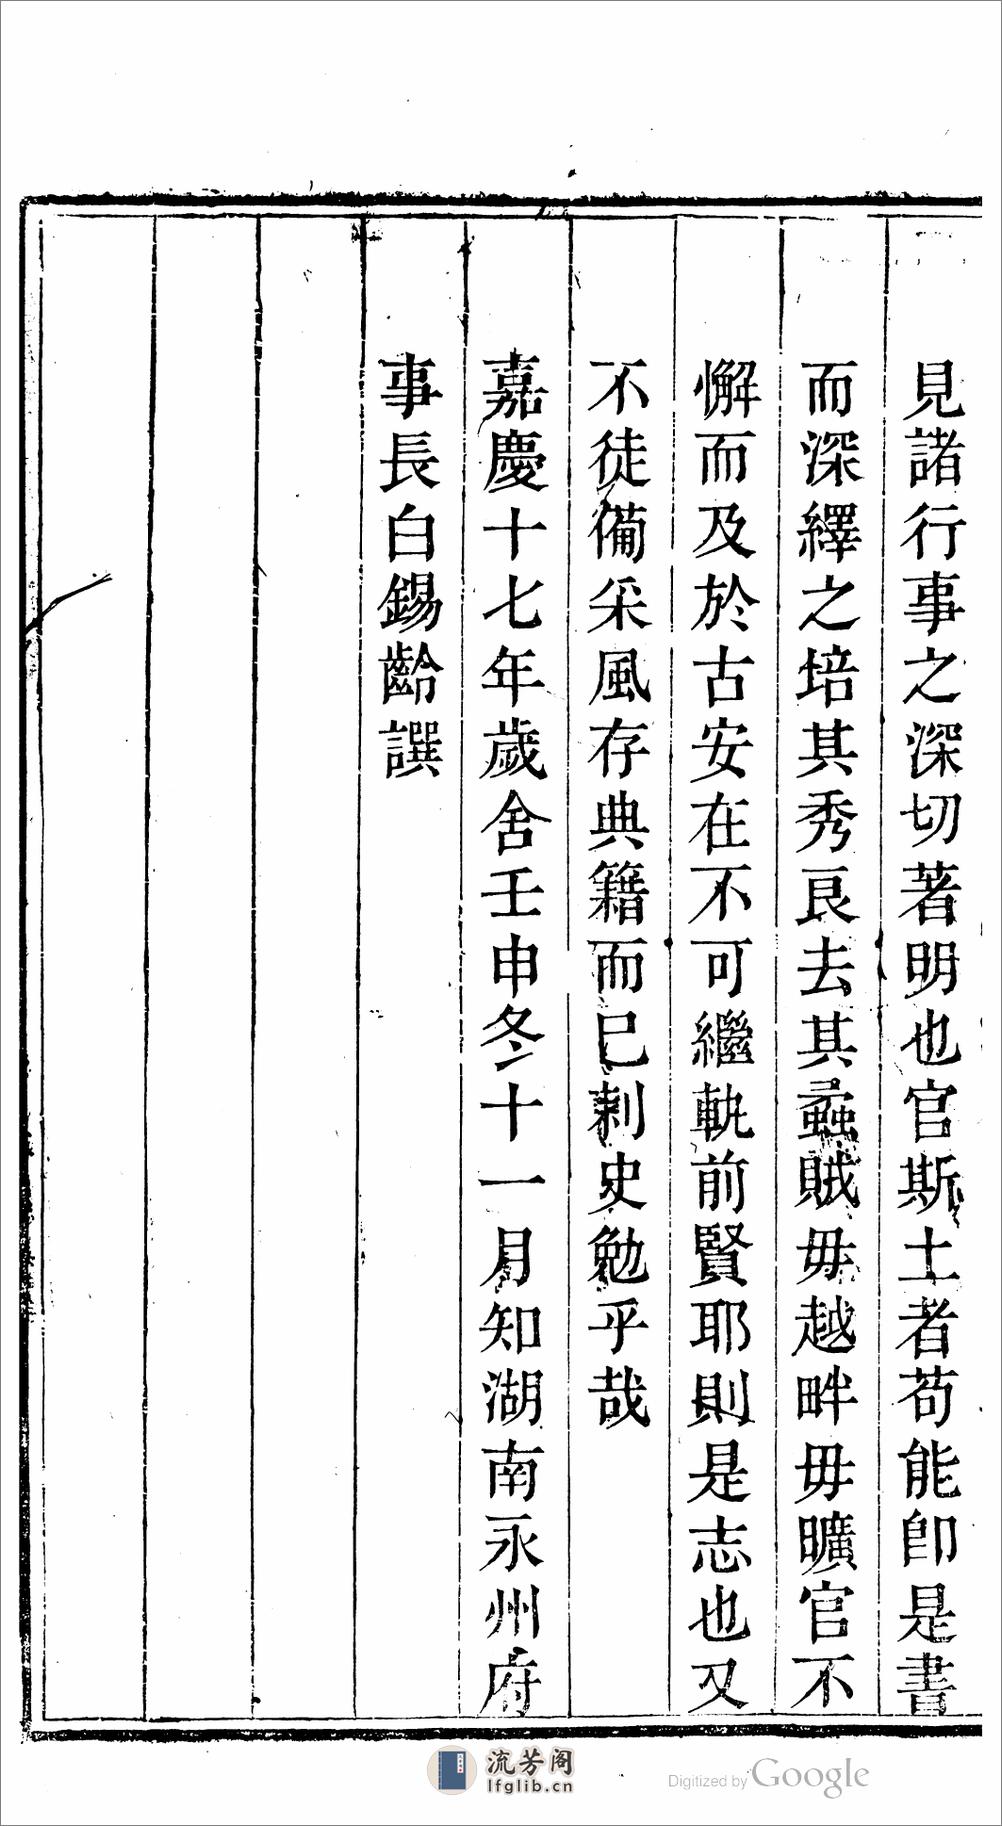 見諸行事之深切著明也官斯土者苟能即是書
而深繹之培其秀良去其蟊賊毋越畔毋曠官不
懈而及於古安在不可繼軌前賢耶則是志也又
不徒備采風存典籍而已刺史勉乎哉
嘉慶十七年歲舍壬申冬十一月知湖南永州府
事長白錫齡譔
流芳阁
lfglib.cn
Digitized by Google